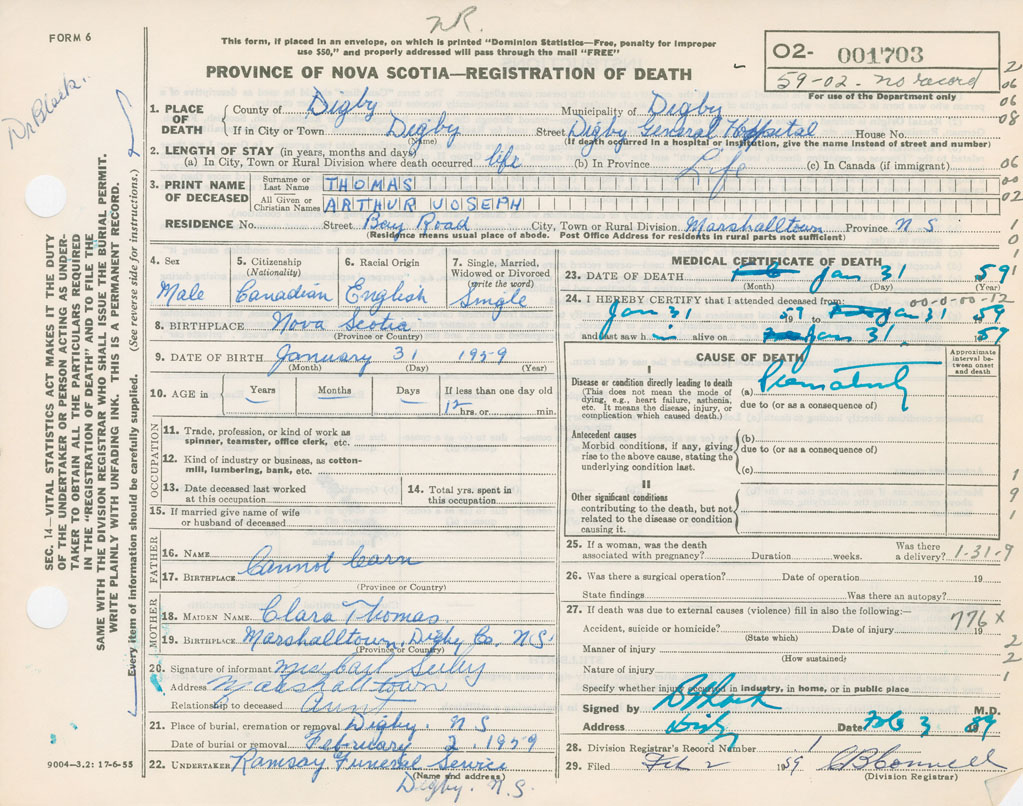 N.R.
FORM 6
This form, if placed in an envelope, on which is printed "Dominion Statistics—Free, penalty for improper
use $50," and properly addressed will pass through the mail "FREE"
PROVINCE OF NOVA SCOTIA—REGISTRATION OF DEATH
02- 001703
59-02. no record
For use of the Department only
Dr Black.
2
06
06
08
06
00
02
1
0
1
1
1
9
1
2
2
1
SEC. 14—VITAL STATISTICS ACT MAKES IT THE DUTY
OF THE UNDERTAKER OR PERSON ACTING AS UNDER-
TAKER TO OBTAIN ALL THE PARTICULARS REQUIRED
IN THE "REGISTRATION OF DEATH" AND TO FILE THE
SAME WITH THE DIVISION REGISTRAR WHO SHALL ISSUE THE BURIAL PERMIT.
WRITE PLAINLY WITH UNFADING INK. THIS IS A PERMANENT RECORD.
Every item of information should be carefully supplied. (See reverse side for instructions.)
1. PLACE OF DEATH
County of Digby Municipality of Digby
If in City or Town Digby Street Digby General Hospital House No.
(If death occurred in a hospital or institution, give the name instead of street and number)
2. LENGTH OF STAY (in years, months and days)
(a) In City, Town or Rural Division where death occurred life (b) In Province Life (c) In Canada (if immigrant)
3. PRINT NAME OF DECEASED
Surname or Last Name THOMAS
All Given or Christian Names ARTHUR JOSEPH
RESIDENCE No. Street Bay Road City, Town or Rural Division Marshalltown Province N S
(Residence means usual place of abode. Post Office Address for residents in rural parts not sufficient)
4. Sex
Male
5. Citizenship (Nationality)
Canadian
6. Racial Origin
English
7. Single, Married, Widowed or Divorced (write the word)
Single
8. BIRTHPLACE Nova Scotia
(Province or Country)
9. DATE OF BIRTH January 31 1959
(Month) (Day) (Year)
10. AGE in Years Months Days If less than one day old
12 hrs. or min.
OCCUPATION
11. Trade, profession, or kind of work as
spinner, teamster, office clerk, etc.
12. Kind of industry or business, as cotton-
mill, lumbering, bank, etc.
13. Date deceased last worked
at this occupation
14. Total yrs. spent in
this occupation
15. If married give name of wife
or husband of deceased
FATHER
16. NAME
Cannot learn
17. BIRTHPLACE
(Province or Country)
MOTHER
18. MAIDEN NAME Clara Thomas
19. BIRTHPLACE Marshalltown, Digby Co. N.S.
(Province or Country)
20. Signature of informant
Address Marshalltown
Relationship to deceased Aunt
21. Place of burial, cremation or removal Digby. N S
Date of burial or removal February 2, 1959
22. UNDERTAKER Ramsay Funeral Service
(Name and address)
Digby. N.S.
9004-3.2: 17-6-55
MEDICAL CERTIFICATE OF DEATH
23. DATE OF DEATH Jan 31 59
(Month) (Day) (Year)
24. I HEREBY CERTIFY that I attended deceased from: 00-0-00-12
Jan 31 1959 to Jan 31 1959
and last saw h im alive on Jan 31, 1959
CAUSE OF DEATH
Approximate interval between onset and death
I
Disease or condition directly leading to death
(This does not mean the mode of
dying, e.g., heart failure, asthenia,
etc. It means the disease, injury, or
complication which caused death.)
(a) Prematurity
due to (or as a consequence of)
Antecedent causes
Morbid conditions, if any, giving
rise to the above cause, stating the
underlying condition last.
(b)
due to (or as a consequence of)
(c)
II
Other significant conditions
contributing to the death, but not
related to the disease or condition
causing it.
25. If a woman, was the death
associated with pregnancy? Duration weeks. Was there a delivery? 1-31-9
26. Was there a surgical operation? Date of operation 19
State findings Was there an autopsy?
27. If death was due to external causes (violence) fill in also the following:—
776 X
Accident, suicide or homicide? Date of injury 19
(State which)
Manner of injury
(How sustained)
Nature of injury
Specify whether injury occurred in industry, in home, or in public place
Signed by M.D.
Address Digby Date Feb 3 1959
28. Division Registrar's Record Number 1
29. Filed Feb 2 1959
(Division Registrar)